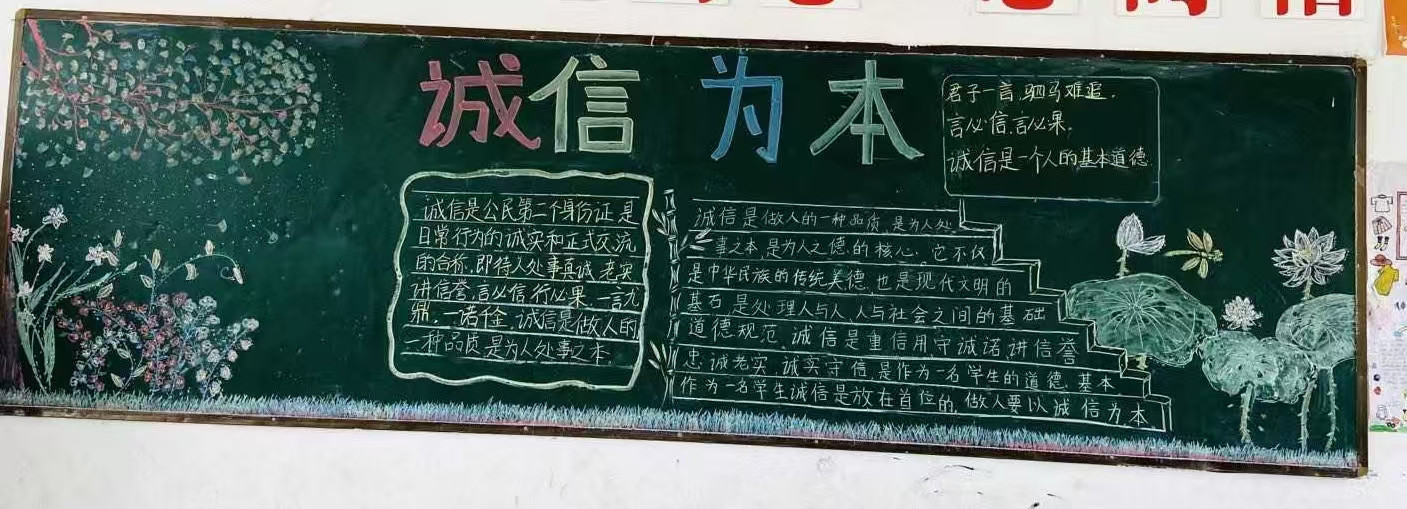 诚信为本
君子一言,驷马难追.
言必信,言必果,
诚信是一个人的基本道德
诚信是公民第二个身份证是
日常行为的诚实和正式交流
的合称,即待人处事真诚、老实
讲信誉,言必信行必果,一言九
鼎,一诺千金,诚信是做人的
一种品质是为人处事之本
诚信是做人的一种品质,是为人处
事之本,是为人之德的核心.它不仅
是中华民族的传统美德,也是现代文明的
基石,是处理人与人,人与社会之间的基础
道德规范,诚信是重信用守诚诺,讲信誉
忠诚老实,诚实守信,是作为一名学生的道德,基本
作为一名学生诚信是放在首位的,做人要以诚信为本